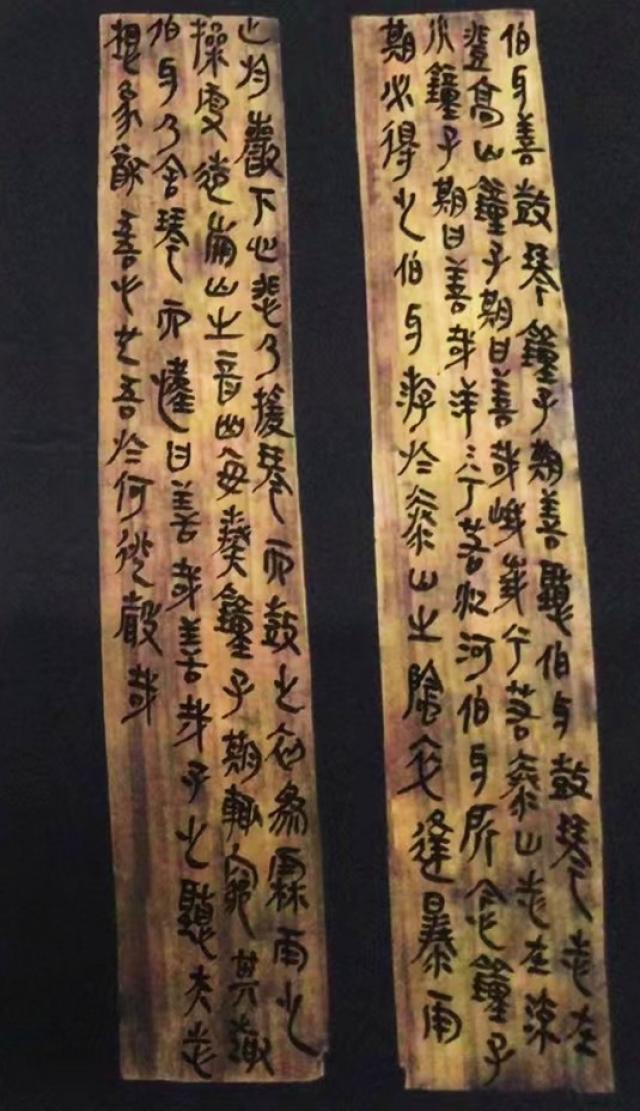 伯牙善鼓琴鐘子期善聽伯牙鼓琴志在
登高山鐘子期曰善哉峨峨兮若泰山志在流
水鐘子期曰善哉洋〻兮若江河伯牙所念鐘子
期必得之伯牙游於泰山之陰卒逢暴雨
止於巖下心悲乃援琴而鼓之初為霖雨之
操更造崩山之音曲每奏鐘子期輒窮其趣
伯牙乃舍琴而嘆曰善哉善哉子之聽夫志
想象猶吾心也吾於何逃聲哉